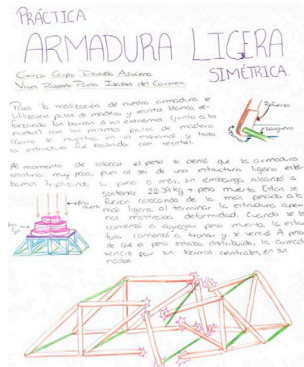 PRÁCTICA
ARMADURA LIGERA
SIMÉTRICA
Carmen
Para la realización de nuestra armadura se
utilizaron palos de madera y resistol blanco, re-
forzando las barras a sus extremos (junto a los
nodos) con los mismos palos de madera
como se muestra en el esquema y toda
la estructura fue
Refuerzo
Larguero
Al momento de colocar el peso se pensó que la armadura
resistiría muy poco, pues al ser de una estructura ligera está-
bamos triplicando su peso o más, sin embargo alcanzó a
sostener kg + peso muerto. Estos se
fueron colocando de lo más pesado a lo
más ligero, al terminar la estructura ape-
nas mostraba deformidad, cuando se le
comenzó a agregar peso muerto la estruc-
tura comenzó a tronar y se venció. A pesar
de que el peso estaba distribuido, la armadura
venció por sus centrales en sus
nodos